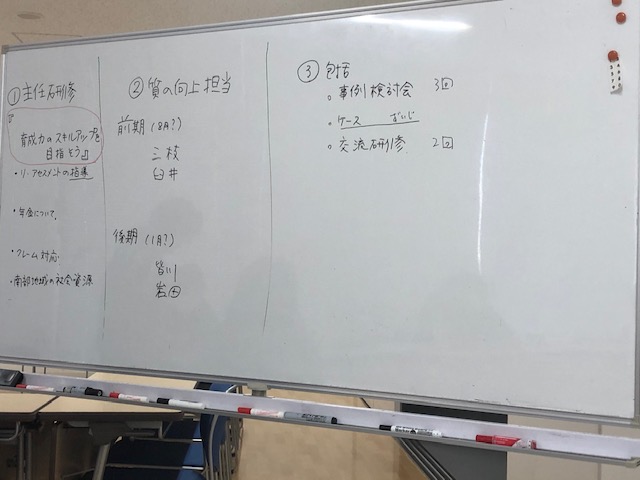 ①主任研修
『
育成力のスキルアップを
目指そう』
・リ・アセスメントの指導
・年金について、
・クレーム対応
・南部地域の社会資源
②質の向上担当
前期(8月?)
三枝
臼井
後期(1月?)
皆川
岩田
③包括
○事例検討会 3回
○ケース
○交流研修 2回